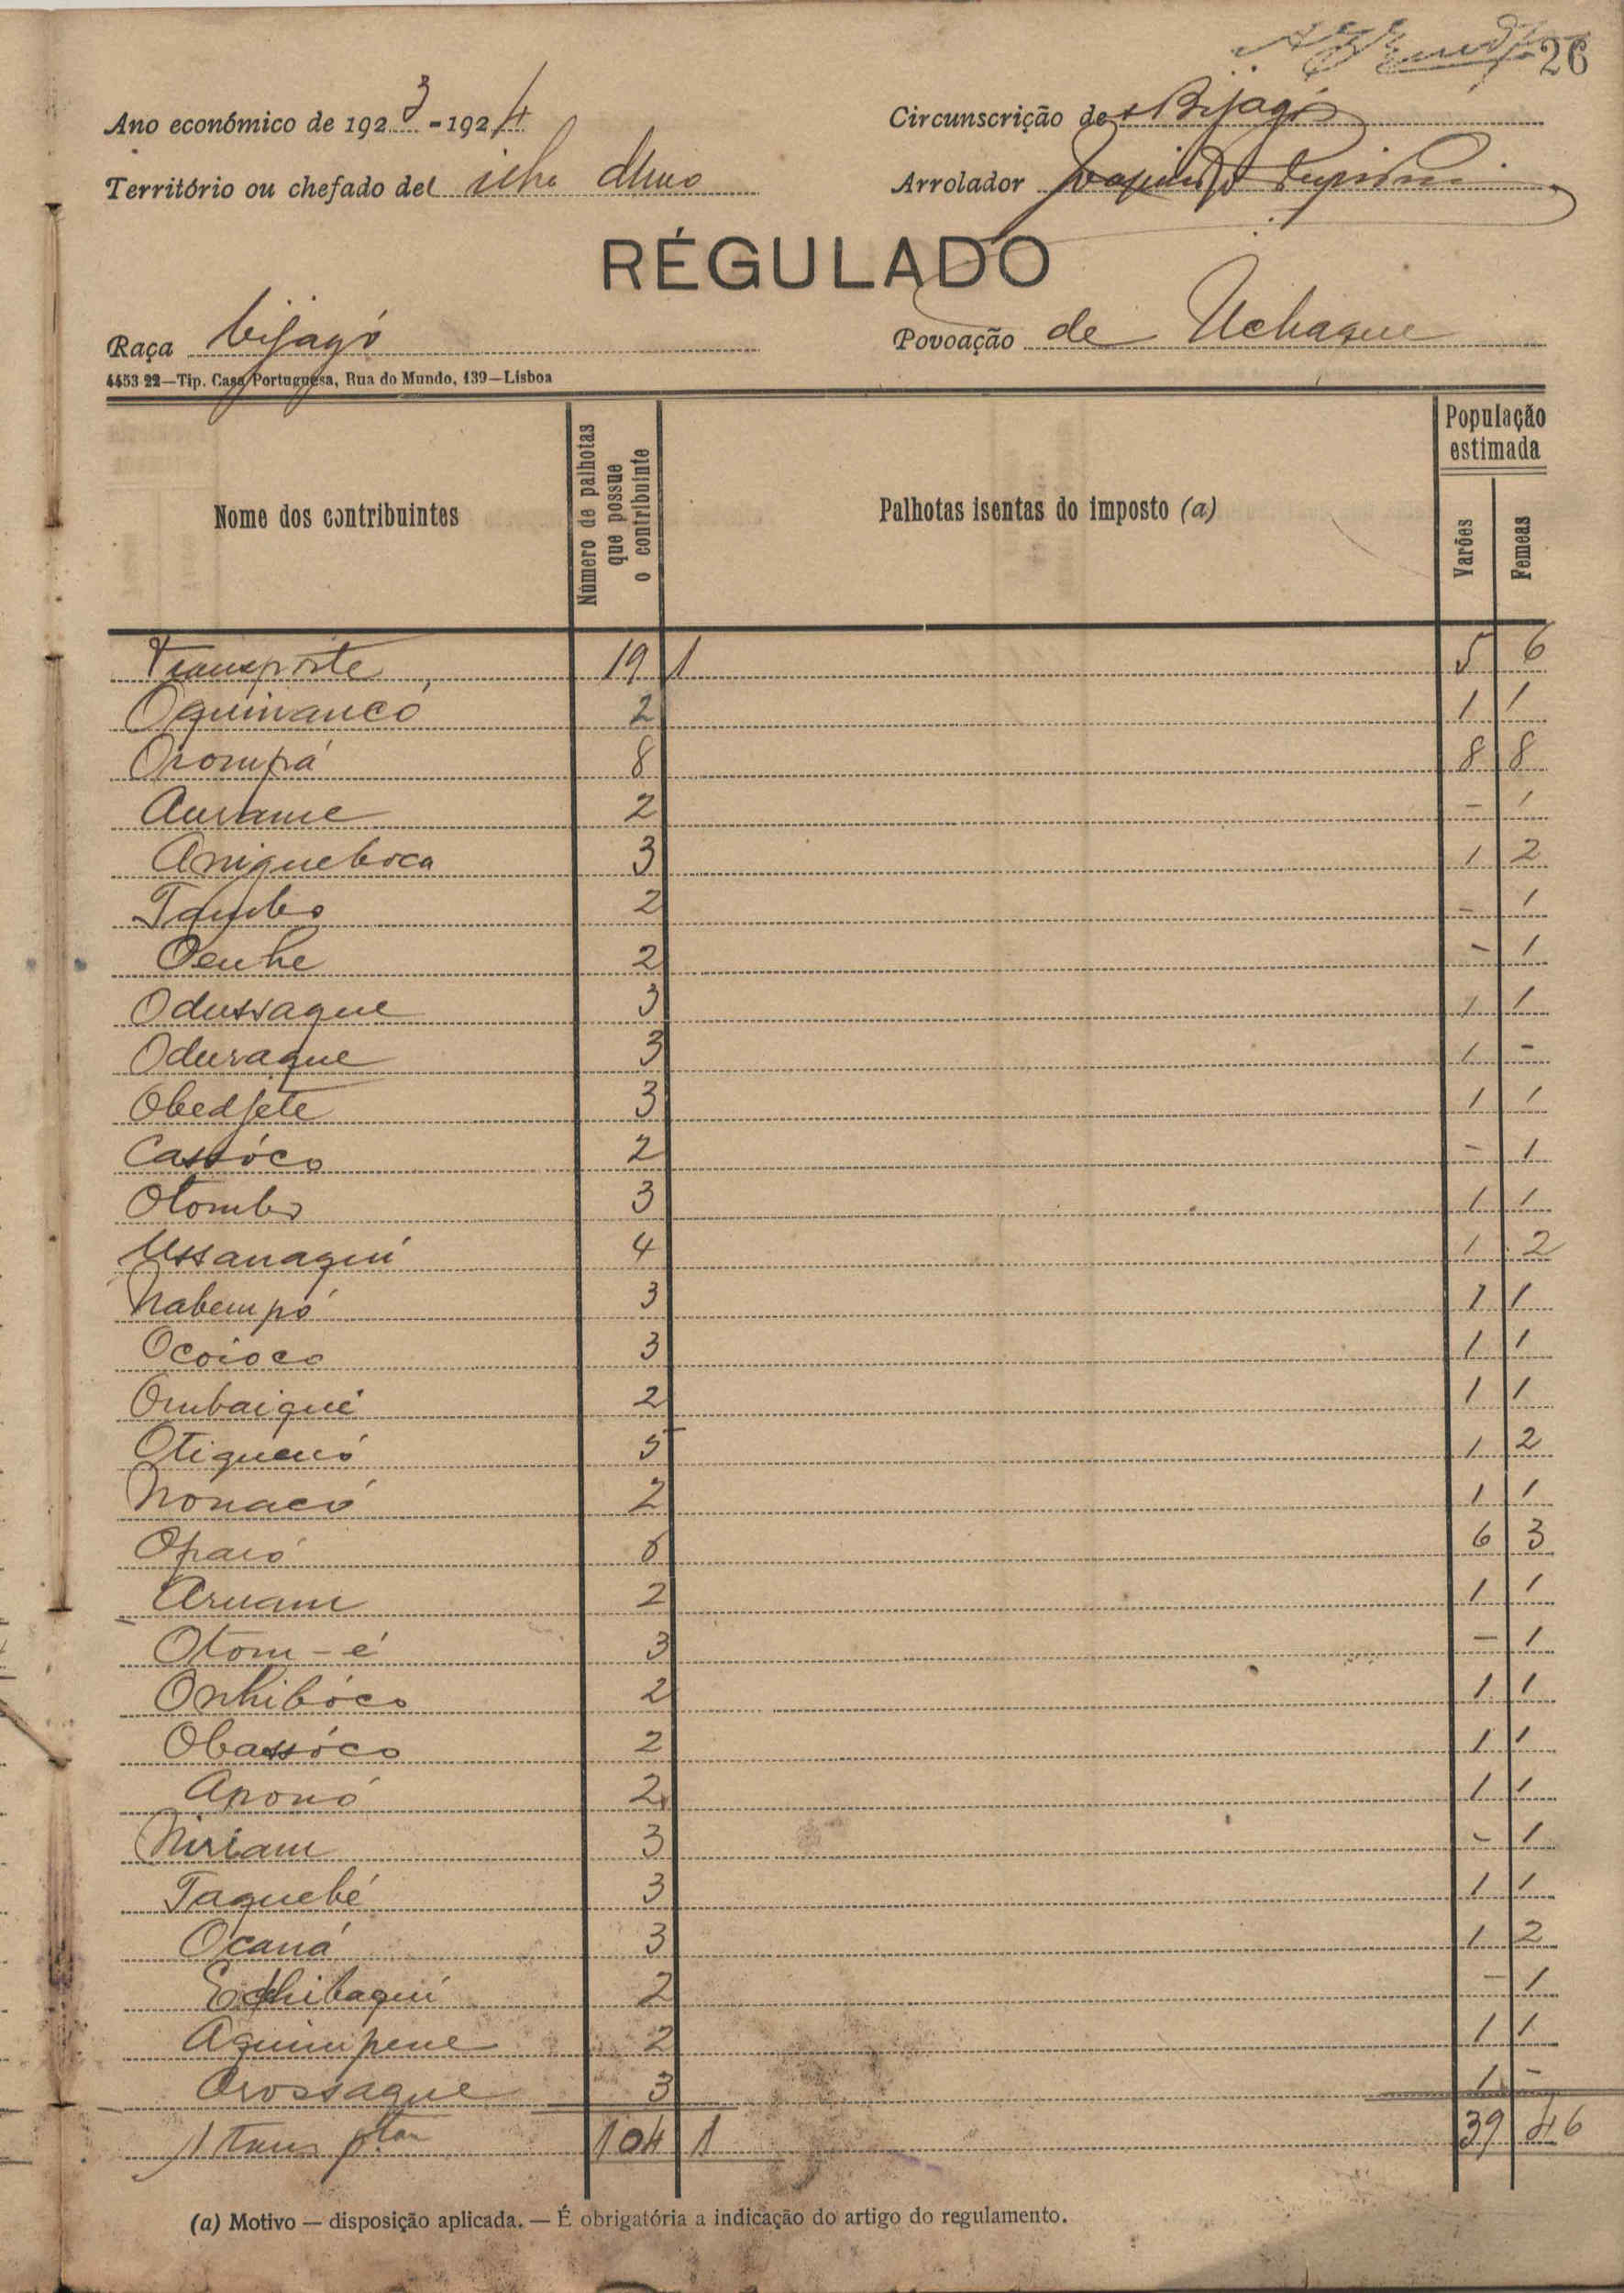 26
Ano económico de 1923-1924
Circunscrição de Bijagós
Território ou chefado de ilha
Arrolador
RÉGULADO
Raça bijagó
Povoação de Uchaque
4453 22—Tip. Casa Portuguesa, Rua do Mundo, 139—Lisboa
Nome dos contribuintes
Número de palhotas que possue o contribuinte
Palhotas isentas do imposto (a)
População estimada
Varões
Femeas
Transporte 19 1 5 6
Oquinancó 2 1 1
Orompá 8 8 8
2 - 1
Aniqueboca 3 1 2
Tambo 2 - 1
Oenhe 2 - 1
Odussaque 3 1 1
Oduraque 3 1 -
Obedjete 3 1 1
Cassóco 2 - 1
Otombo 3 1 1
Ussanaqui 4 1 2
Nabempó 3 1 1
Ocoioco 3 1 1
Ombaiqué 2 1 1
Otiquenó 5 1 2
Nonacó 2 1 1
Opaió 6 3
Aruam 2 1 1
Otom-é 3 - 1
Onhibóco 2 1 1
Obassóco 2 1 1
Aponó 2 1 1
Niriam 3 - 1
Taquebé 3 1 1
Ocaná 3 1 2
2 - 1
Aquimpene 2 1 1
Orossaque 3 1 -
104 1 39 46
(a) Motivo — disposição aplicada. — É obrigatória a indicação do artigo do regulamento.